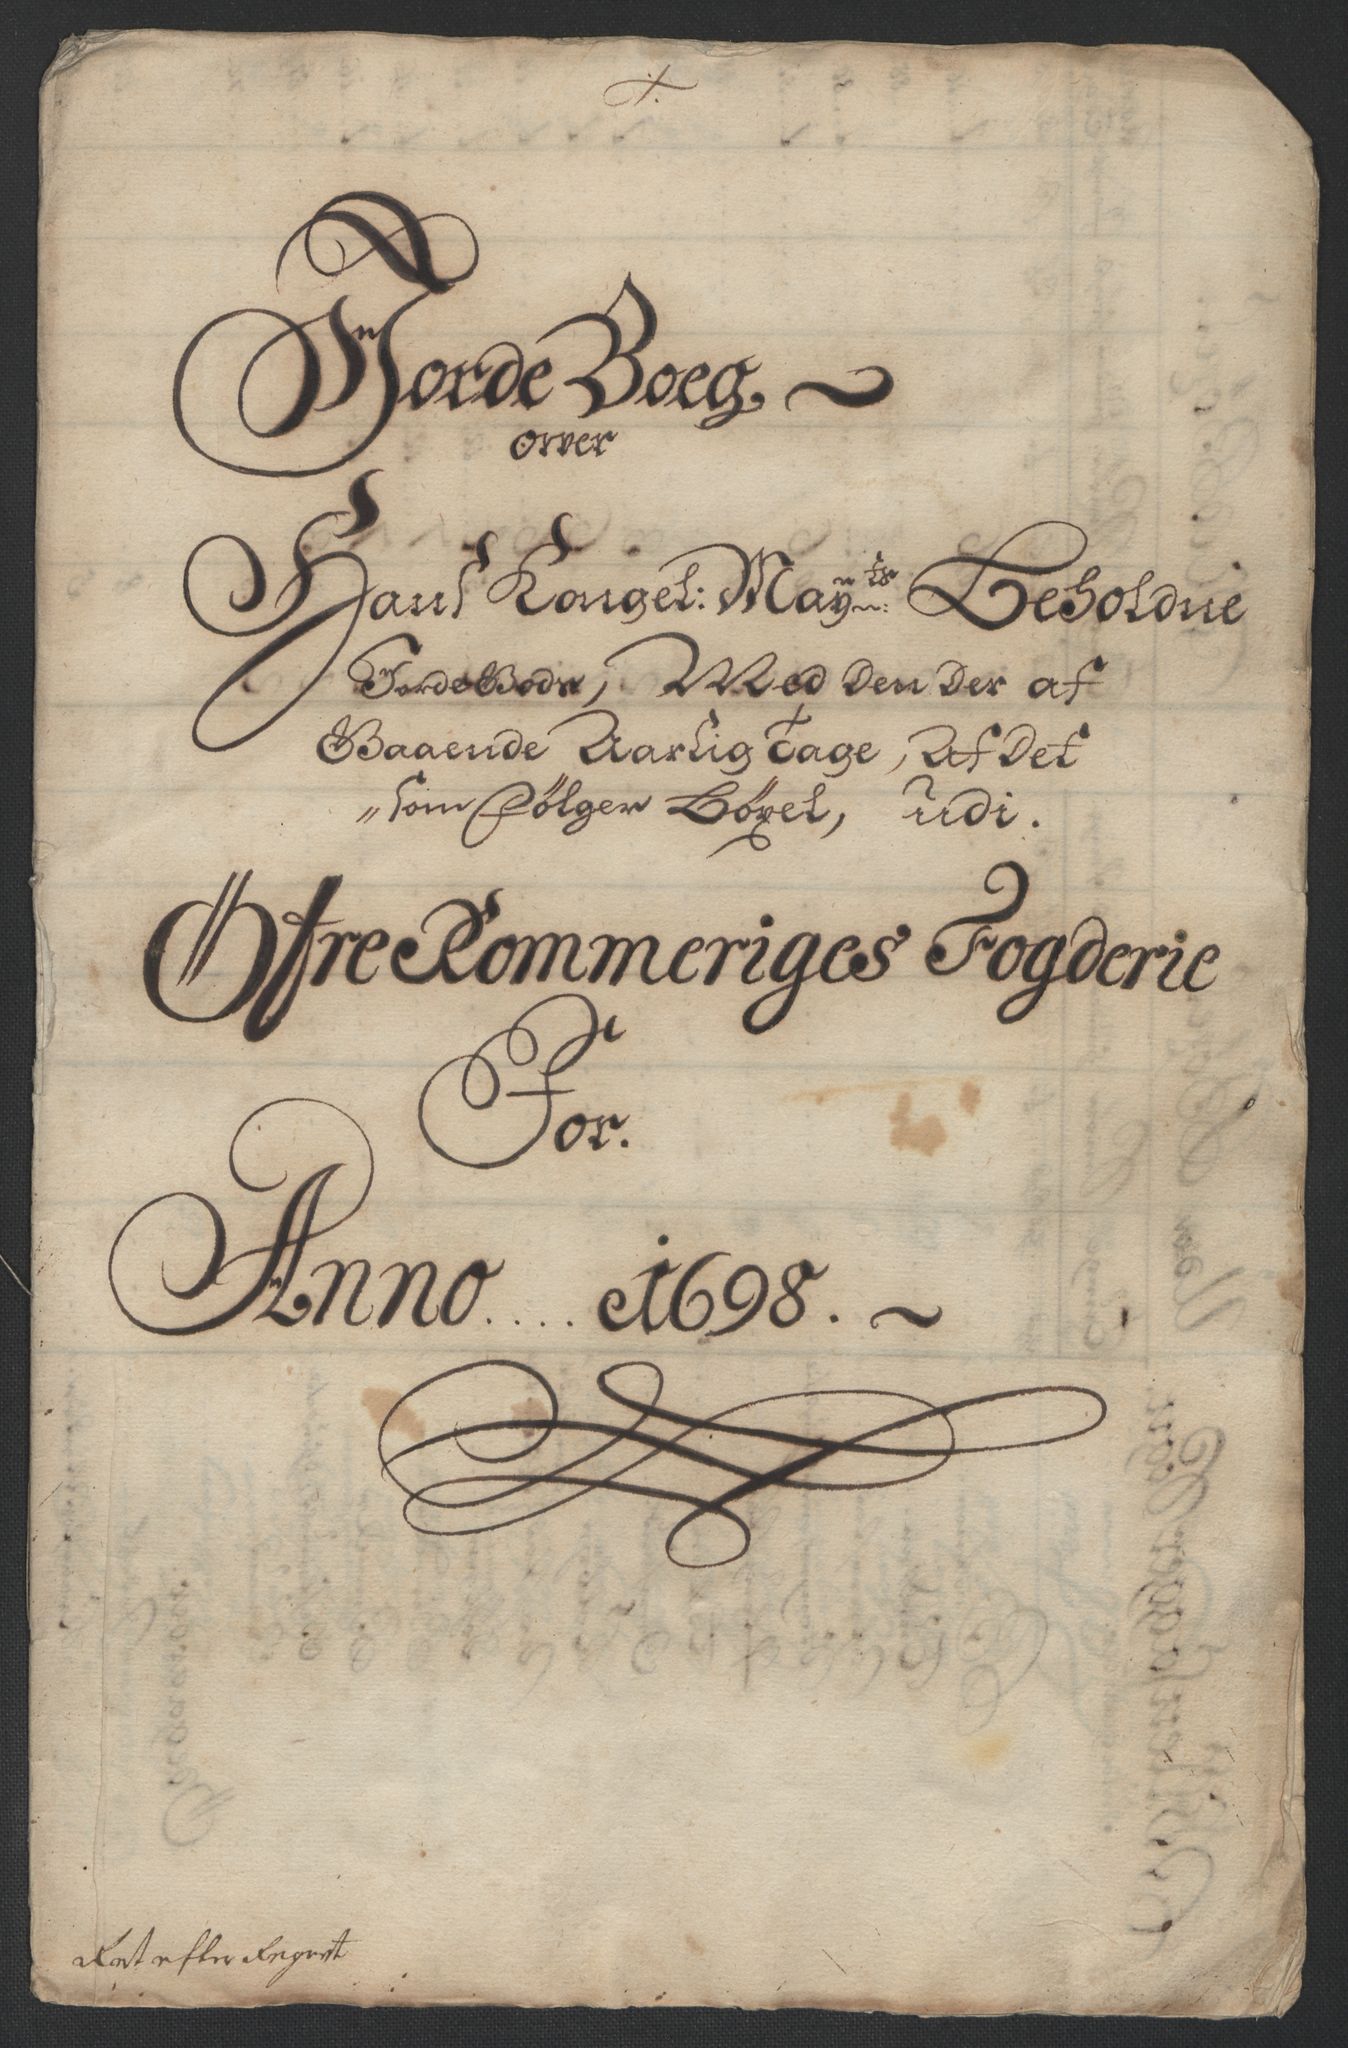 Jorde Boeg
over
Hans Kongel: May:ts Beholdne
Jorde Bods, Med den der af
Gaaende Aarlig Tage, Af det
som følger Bøxel, udi.
Øfre Rommeriges Fogderie
For.
Anno.... 1698.
Ret efter Regnet